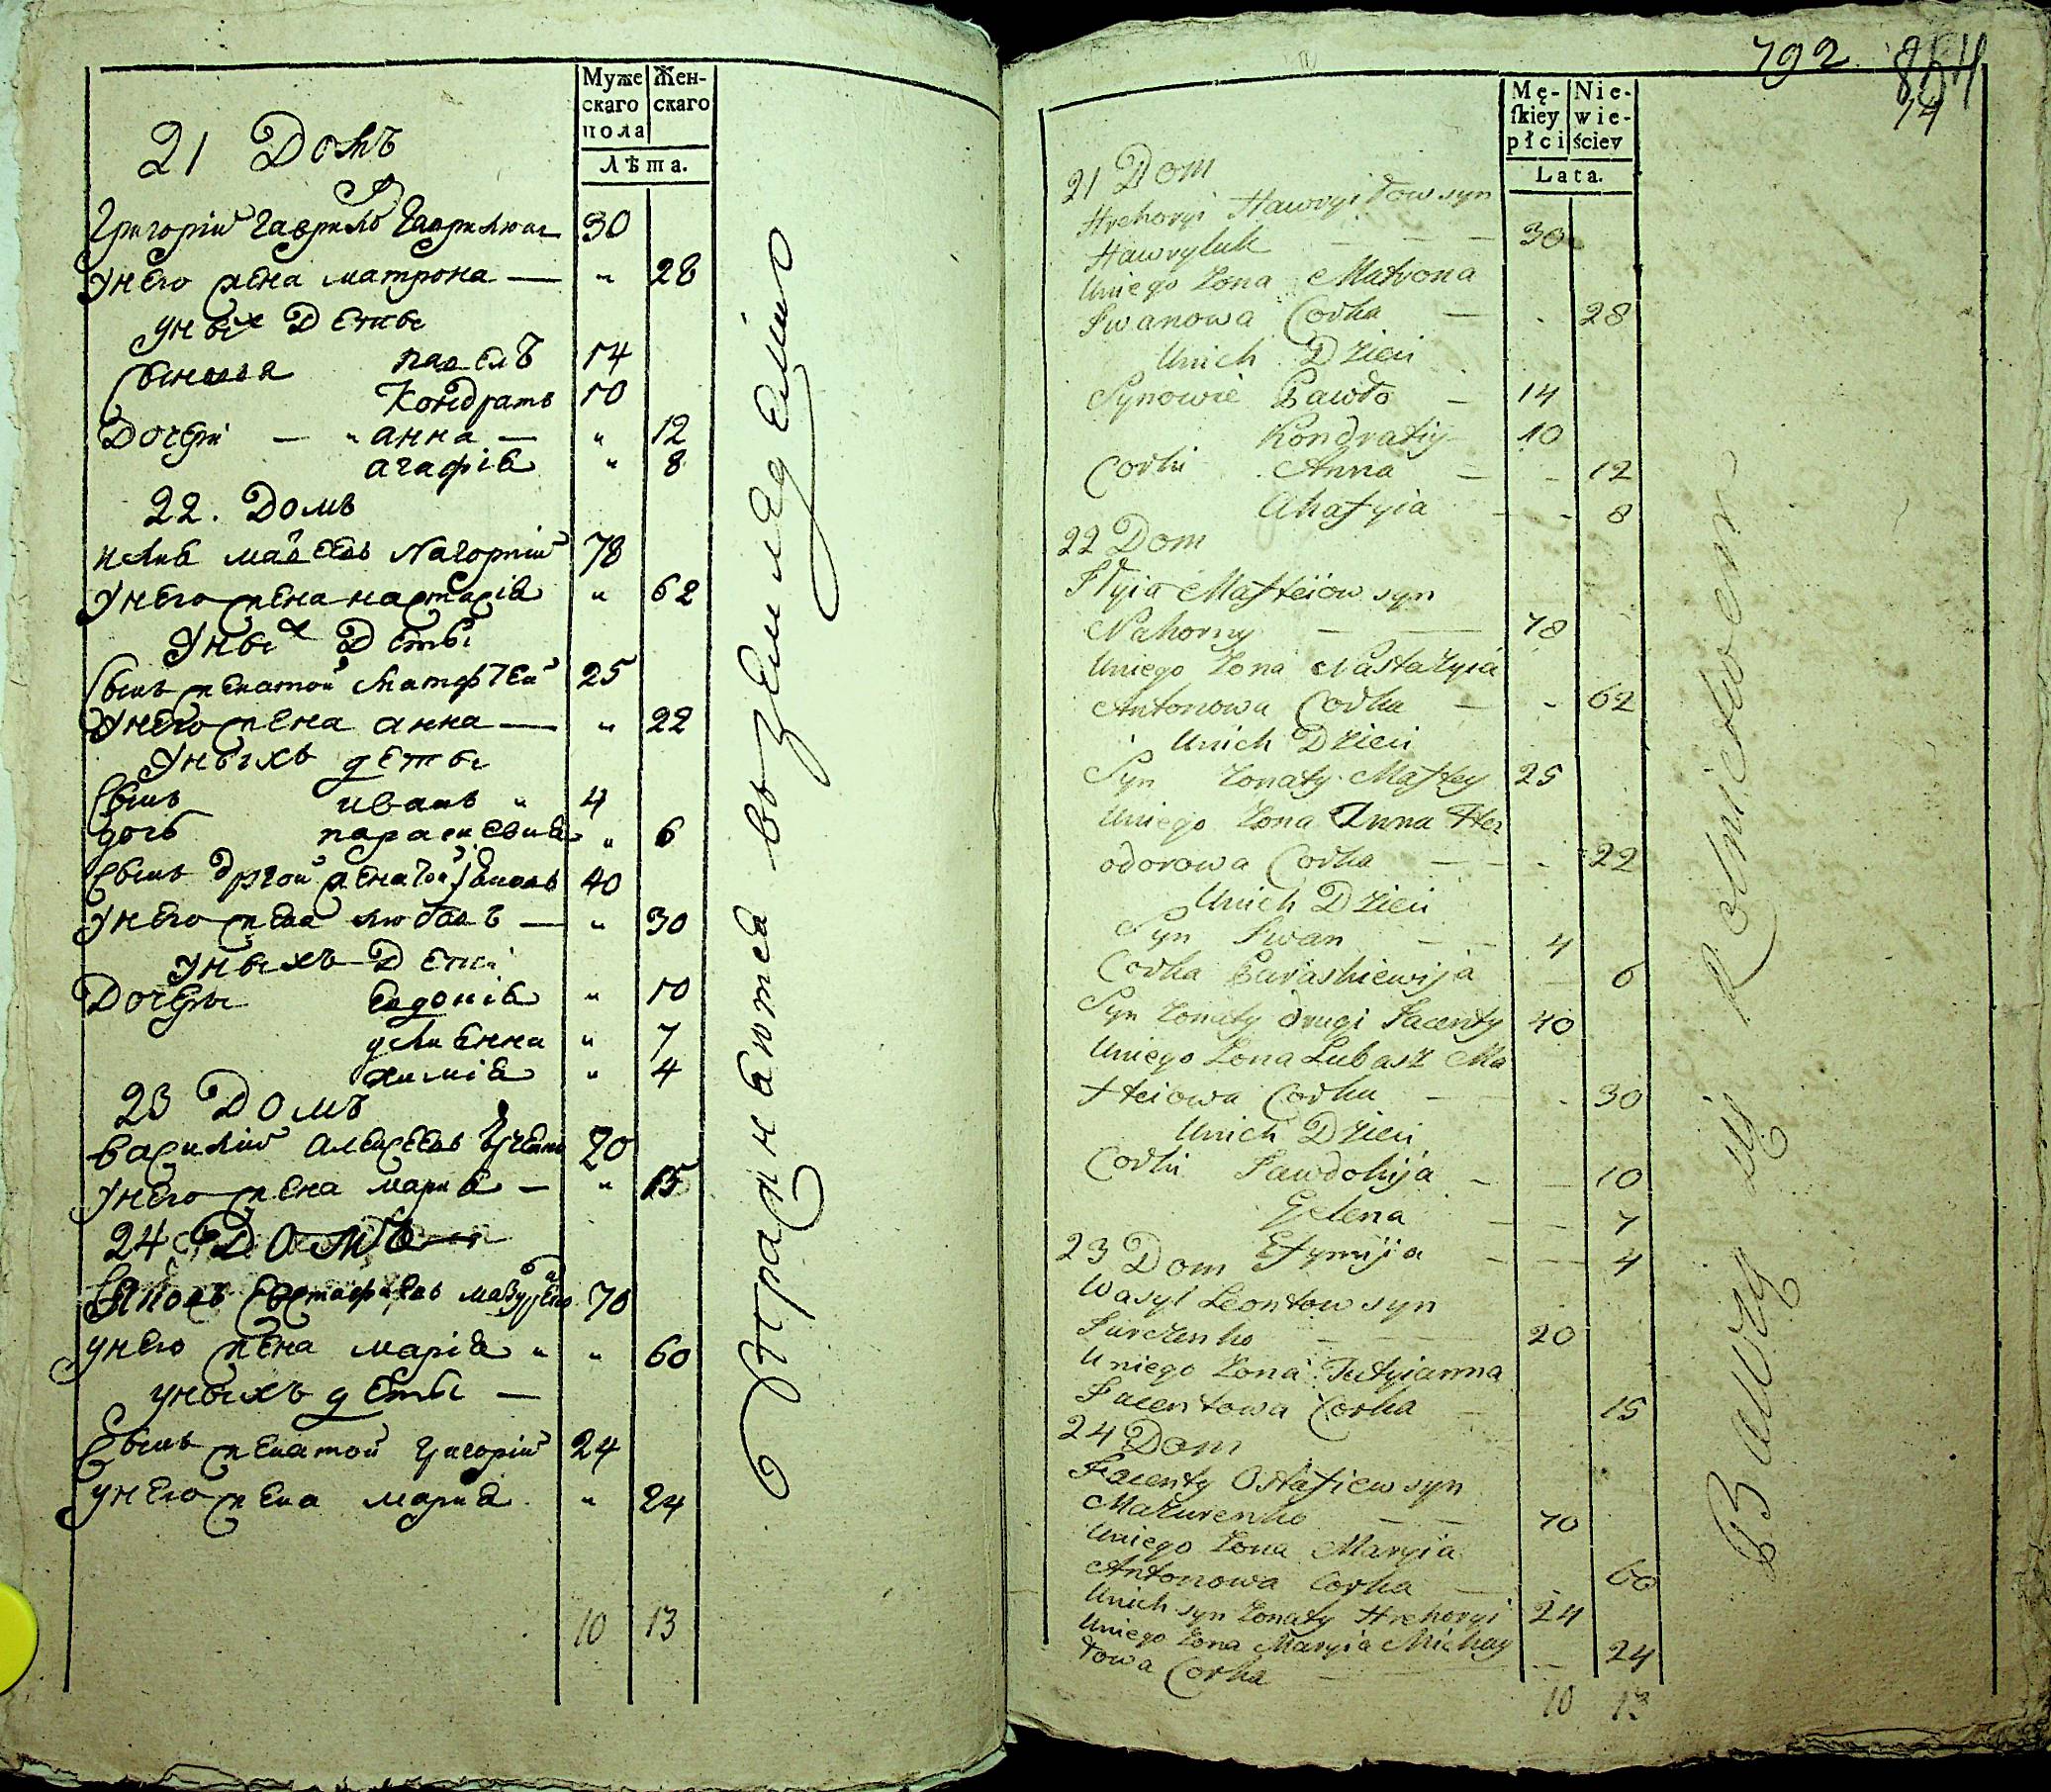 Муже
скаго
пола
Жен-
скаго
Лѣта.
21 Домъ
Григорій Гаврилъ Гаврилюк 30
унего жена матрона — „ 28
уныхъ Дѣты
Сыновя Павелъ 14
Кондратъ 10
Дочери — „ анна — „ 12
агафія „ 8
22. Домъ
илия матвеевъ Нагорний 78
унего жена настасія „ 62
Уныхъ Дѣты
Сынъ женатой Матфѣей 25
Унего жена анна — „ 22
Уныхъ дѣты
Сынъ иванъ „ 4
дочь параскевия „ 6
Сынъ другой женатой 40
унего жена любовъ — „ 30
Уныхъ Дети
Дочеры Евдокия „ 10
улиянна „ 7
химия „ 4
23 Домъ
василий 20
унего жена мария — „ 15
24 Домъ
Евстафиевъ 70
унего жена мария „ „ 60
уныхъ дѣты —
Сынъ женатой григорий 24
унего жена мария „ 24
10 13
Упражняются въ земледелию
792
14
Mę-
skiey
płci
Nie-
wie-
ściey
Lata.
21 Dom
Hrehoryi Hawryiłow syn
Hawryluk — — — 30
Uniego Żona Matrona
Iwanowa Corka — - 28
Unich Dzieci
Synowie Pawło — 14
Kondratiy 10
Corki Anna — - 12
Ahafyia — - 8
22 Dom
Ilyia Matfeiow syn
Nahorny — — 78
Uniego Żona Nastazyia
Antonowa Corka — - 62
Unich Dzieci
Syn Żonaty Matfey 25
Uniego Żona Anna Fte
odorowa Corka — - 22
Unich Dzieci
Syn Iwan — — 4
Corka Paraskiewija — 6
Syn Żonaty drugi Jacenty 40
Uniego Żona Lubasz Ma
tfeiowa Corka — - 30
Unich Dzieci
Corki Jawdohija — — 10
Jelena — — 7
23 Dom Efymija — — 4
Wasyl Leontow syn
Jurczenko — 20
Uniego Żona Tatyianna
Jacentowa Corka — 15
24 Dom
Jacenty Ostafiew syn
Mazurenko — — 70
Uniego Żona Maryia
Antonowa Corka — - 60
Unich syn Żonaty Hrehoryi 24
Uniego Żona Maryia Michay
łowa Corka — — 24
10 13
Bawią się Rolnictwem